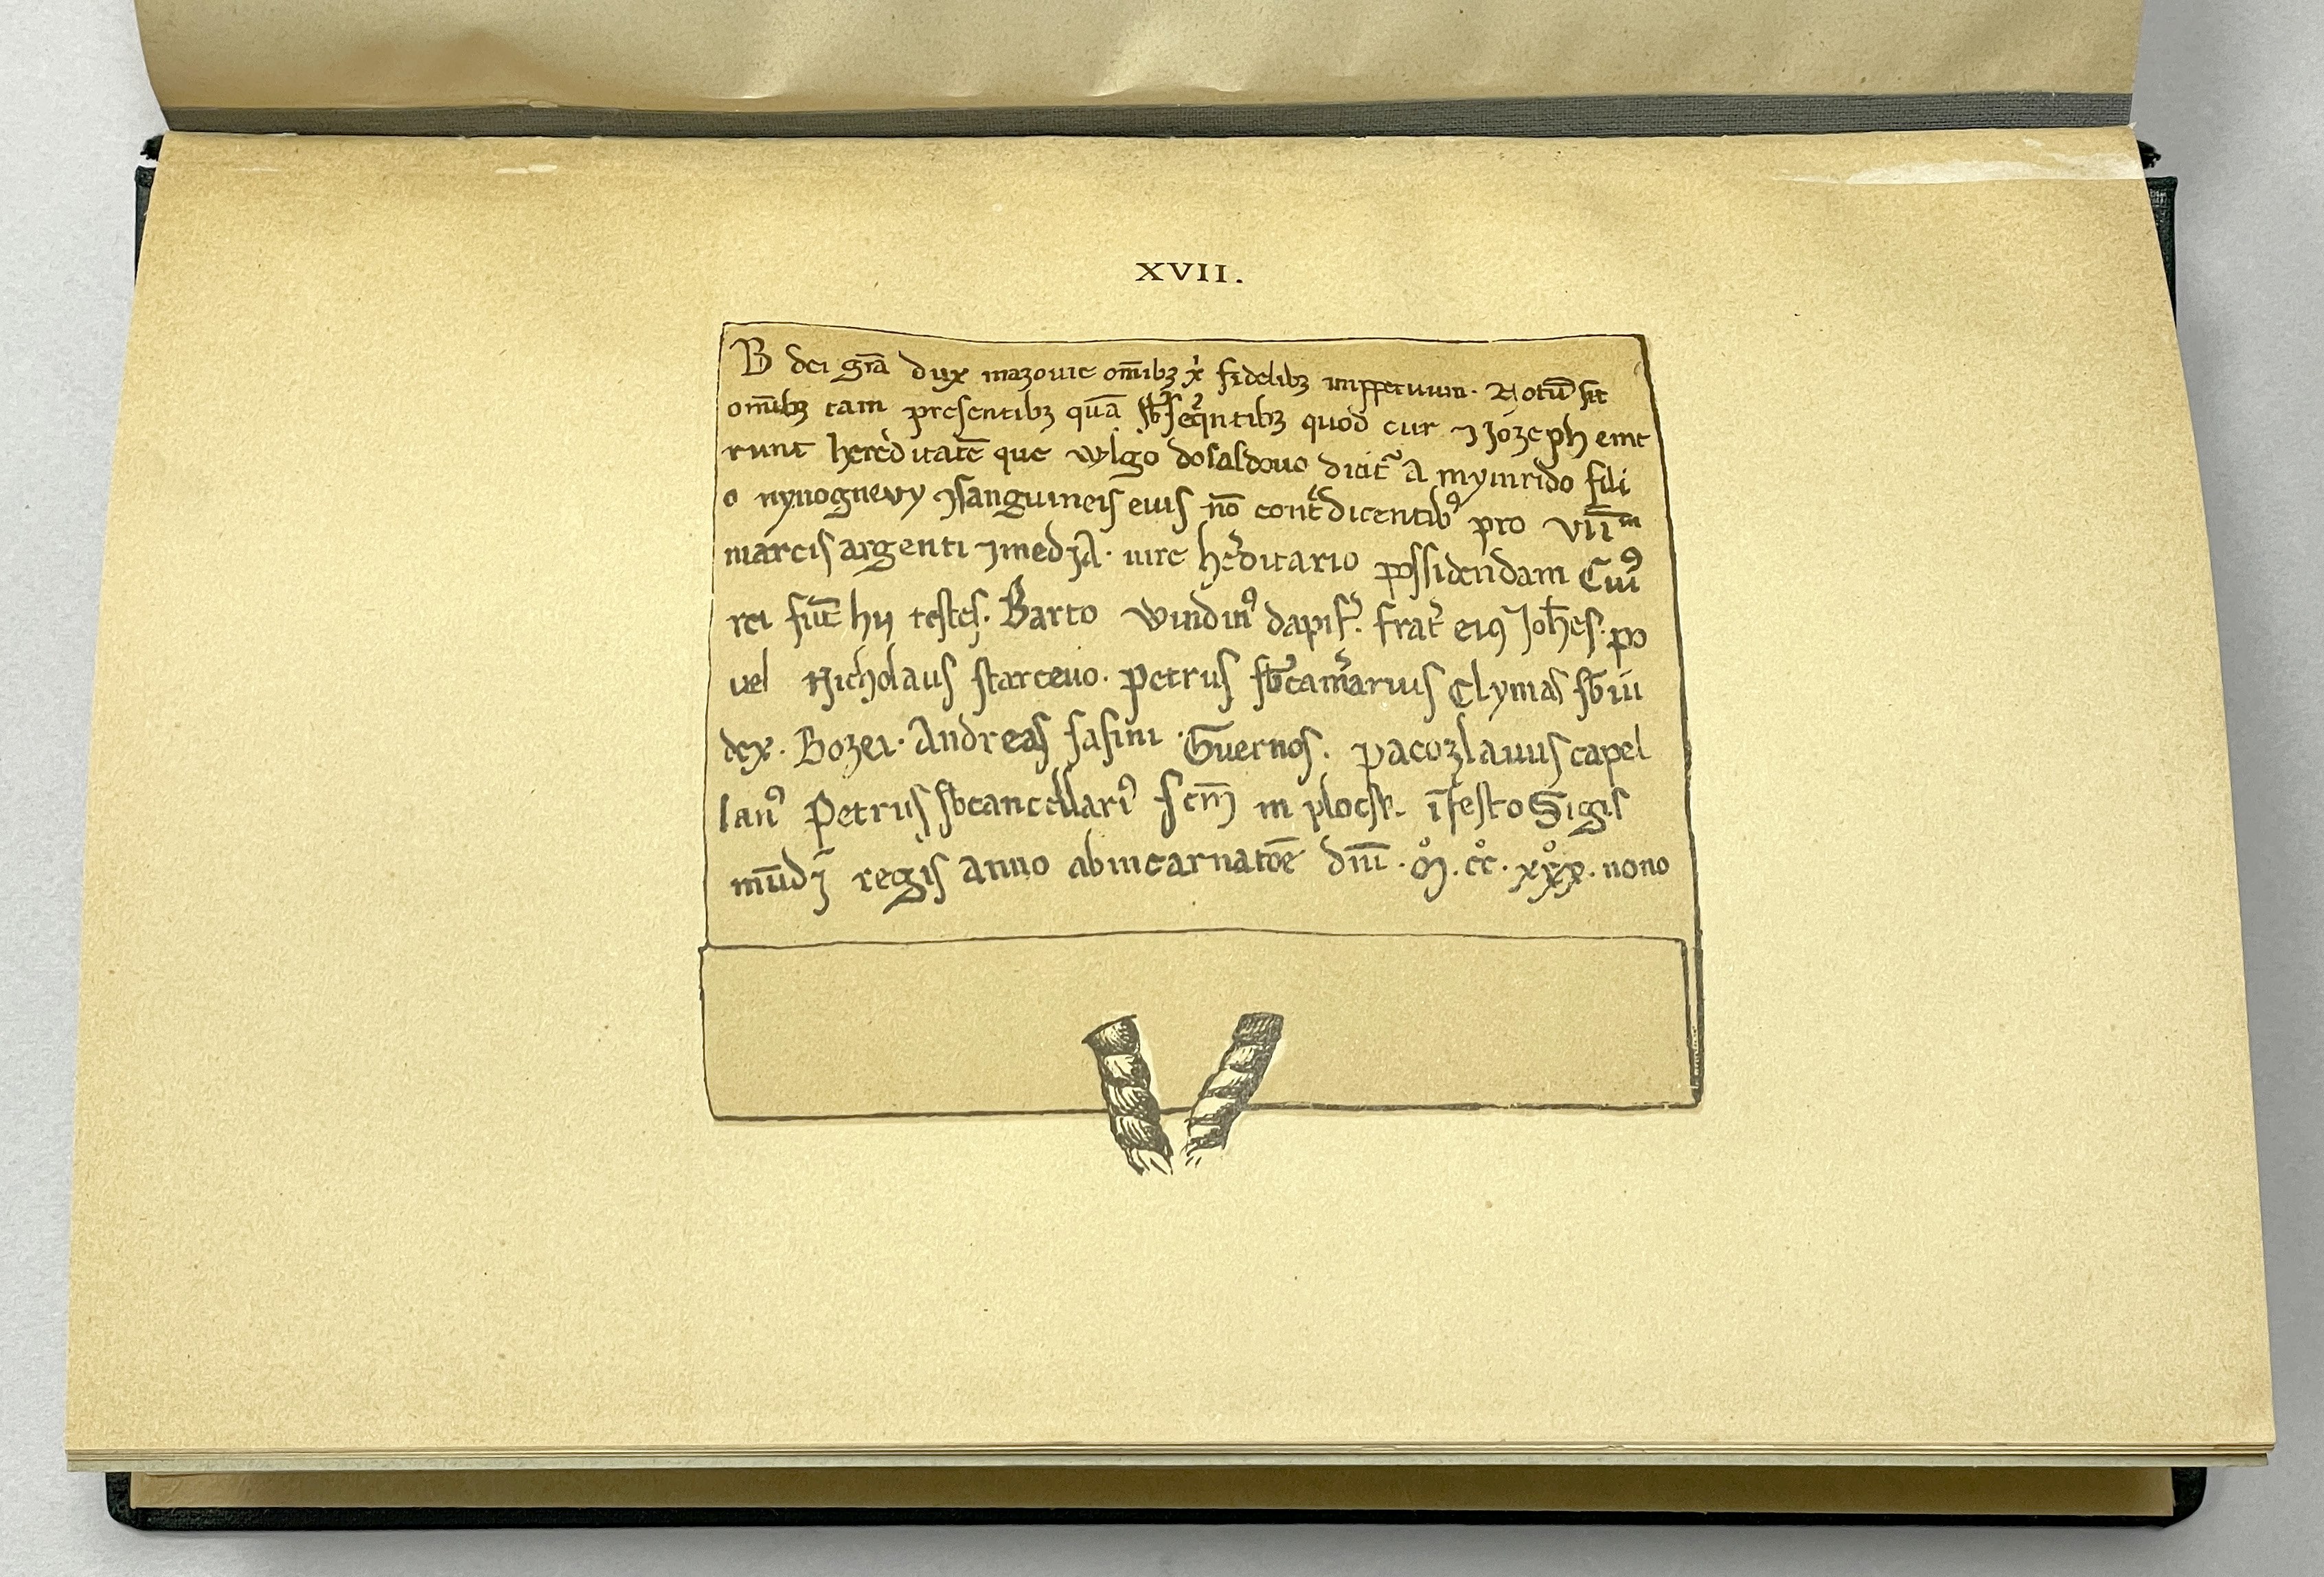 XVII.
B dei gr̄a dux mazouie om̄ibꝫ x̓ fidelibꝫ imꝑpetuum. Notū sit
omībꝫ tam presentibꝫ quā sb̄seq̄ntibꝫ quod cur ⁊ Jozeph eme
runt hereditatē que wlgo dosasdouo dicit᷑ a mymrido fili
o nynogneuy ↄsanguineis eius nō cont̃dicentibꝰ pro vii᷒ᵐ
marcis argenti ⁊ medja. iure he᷑ditario possidendam Cuiꝰ
rei sūt hij testes. Barto windinꝰ dapif᷑. frat᷑ eiꝰ Joh̄es. po
uel Nicholaus starceuo. Petrus sb̄cam᷑arius Clymas sb̄iu
dex. Bozei. Andreas sasini. Guernos. Pacozlauus capel
lanꝰ Petrus sb̄cancellariꝰ Scm̄ in plocsk. ī festo Sigis
mūdj regis anno abincarnatōe dn̄i. M̊. cc̊. xx̊x. nono